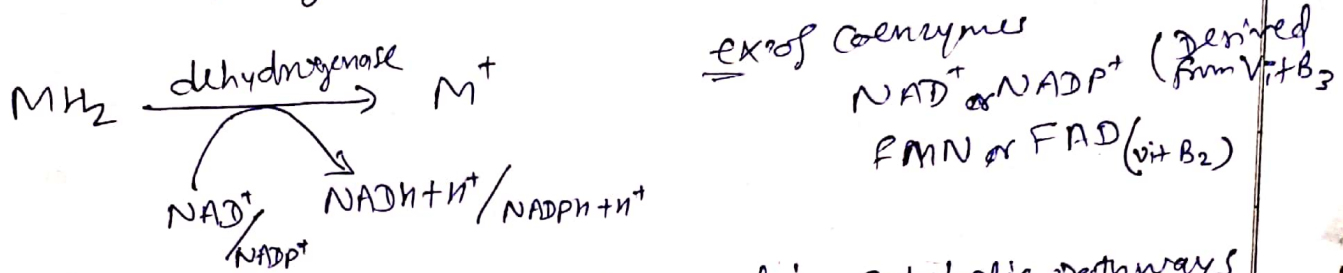 MH₂ dehydrogenase M⁺
NAD⁺/NADP⁺ NADH+H⁺/NADPH+H⁺
ex of Coenzymes
NAD⁺ or NADP⁺ (Derived
from Vit B₃
FMN or FAD (vit B₂)
pathways